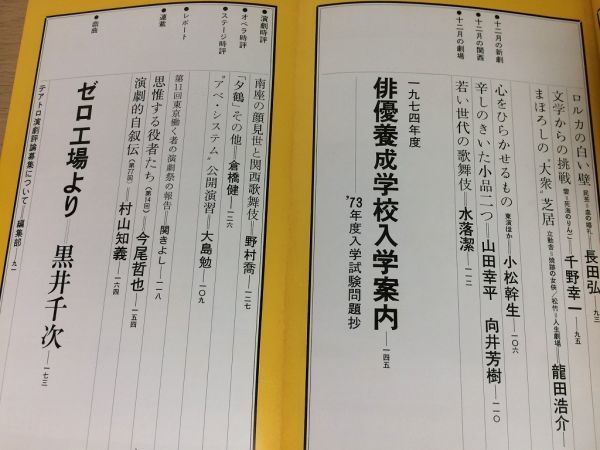 ロルカの白い壁 民芸=血の婚礼 長田弘 九三
文学からの挑戦 雲=死海のりんご 千野幸一 九五
まぼろしの“大衆”芝居 立動舎=焼跡の女侠/松竹=人生劇場 龍田浩介
●十二月の新劇
心をひらかせるもの 東演ほか 小松幹生 一〇六
●十二月の関西
辛しのきいた小品二つ 山田幸平 向井芳樹 一一〇
●十二月の劇場
若い世代の歌舞伎 水落潔 一一二
一九七四年度
俳優養成学校入学案内 一四五
'73年度入学試験問題抄
●演劇時評
南座の顔見世と関西歌舞伎 野村喬 一二七
●オペラ時評
「夕鶴」その他 倉橋健 一二六
●ステージ時評
“アベ・システム”公開演習 大島勉 一〇九
●レポート
第11回東京働く者の演劇祭の報告 関きよし 一一八
●連載
思惟する役者たち(第14回) 今尾哲也 一五四
演劇的自叙伝(第77回) 村山知義 一六四
●戯曲
ゼロ工場より 黒井千次 一七三
テアトロ演劇評論募集について 編集部 九一